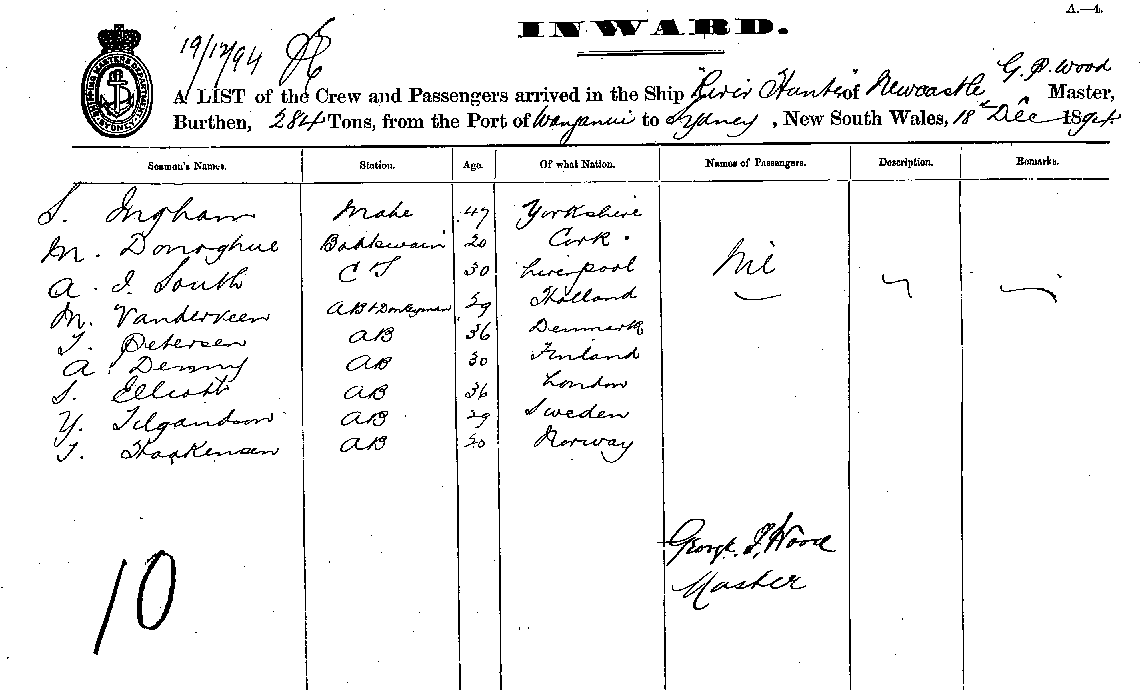 A.—4.
INWARD.
19/12/94
G. P. Wood
A LIST of the Crew and Passengers arrived in the Ship "River Hunter" of Newcastle Master,
Burthen, 284 Tons, from the Port of Wanganui to Sydney, New South Wales, 18th Dec 1894
Seamen's Names. Station. Age. Of what Nation. Names of Passengers. Description. Remarks.
S. Ingham Mate 47 Yorkshire
M. Donoghue 20 Cork. Nil
A. I. South 30 Liverpool
M. Vanderveen AB & Donkeyman 29 Holland
Petersen AB 36 Denmark
A. Denny AB 30 Finland
S. Elliott AB 36 London
Y. AB 29 Sweden
Haakensen AB 20 Norway
George Wood
Master
10